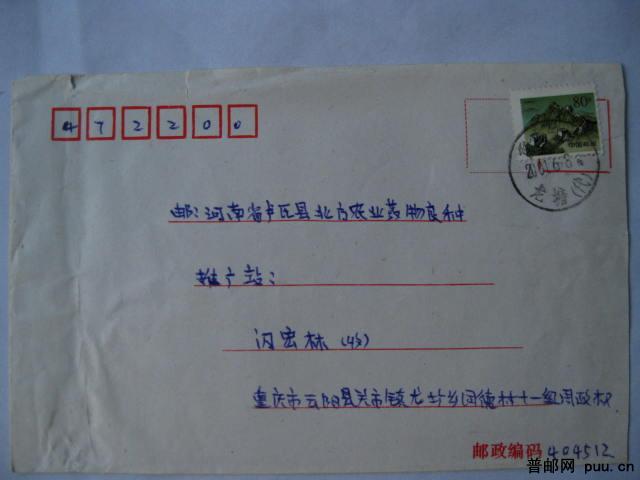 472200
80分
中国邮政
邮:河南省卢氏县北方农业药物良种
推广站:
闪宏林(收)
重庆市云阳县关市镇龙坊乡同德村十一组周政权
邮政编码 404512
普邮网 puu.cn